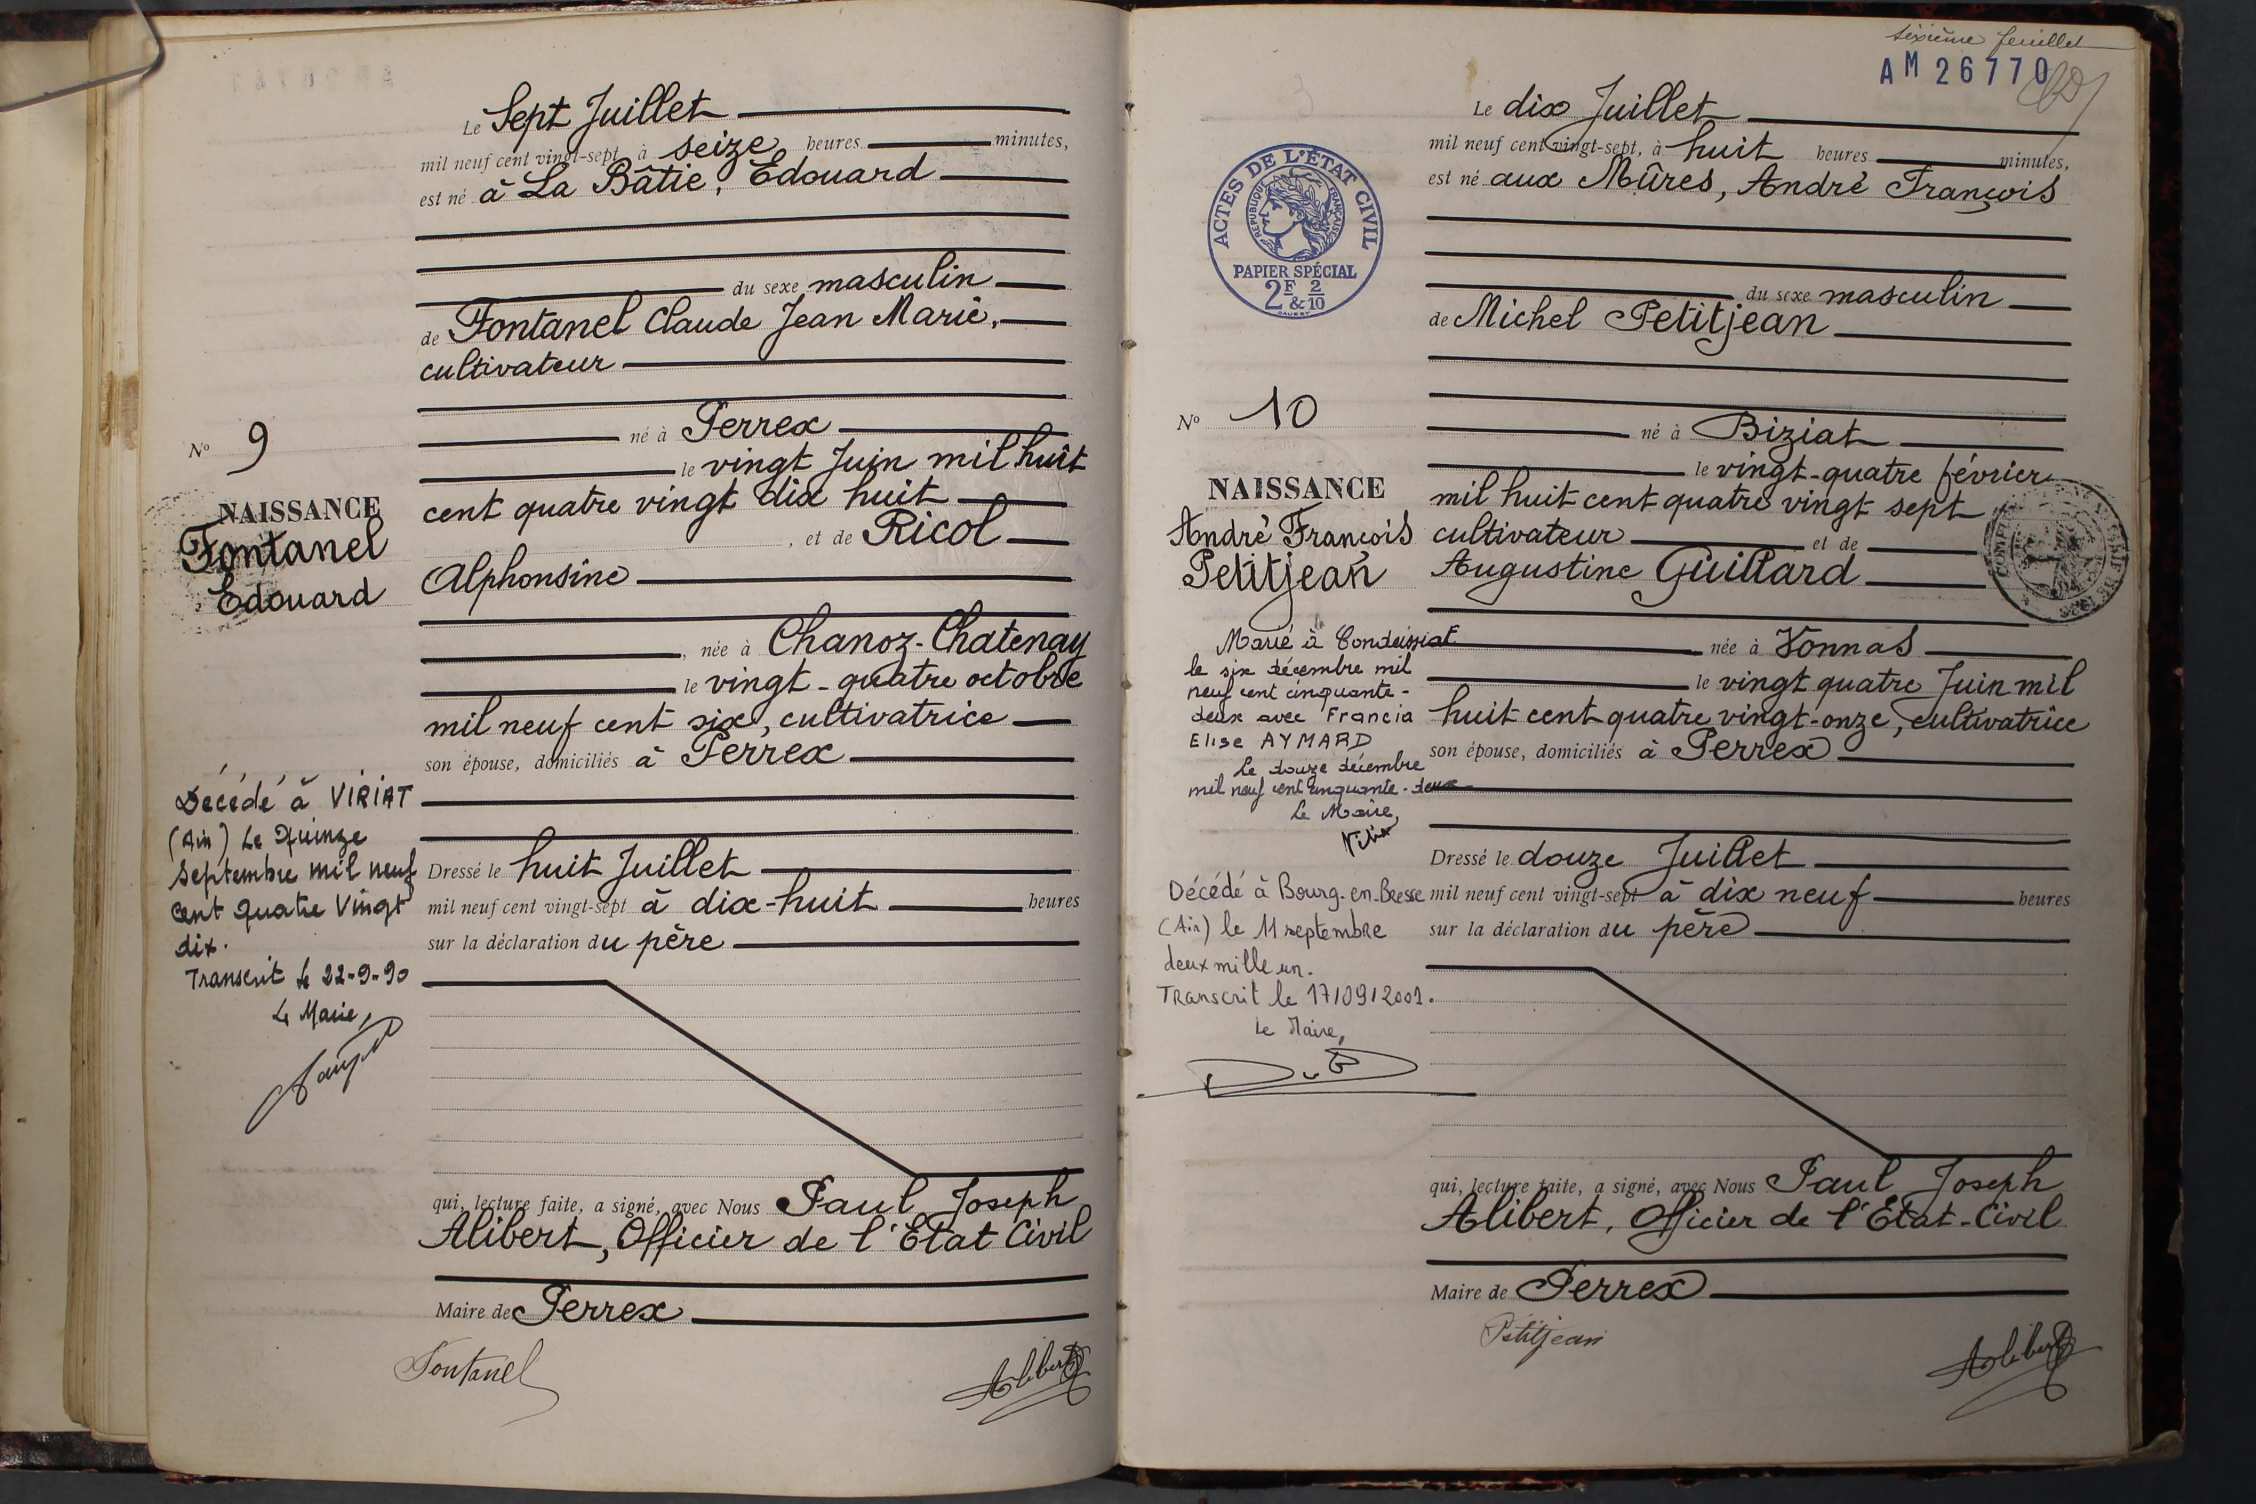 Le Sept Juillet
mil neuf cent vingt-sept à seize heures minutes,
est né à La Bâtie, Edouard
du sexe masculin
de Fontanel Claude Jean Marie,
cultivateur
né à Perrex
le vingt Juin mil huit
cent quatre vingt dix huit
, et de Ricol
Alphonsine
, née à Chanoz-Chatenay
le vingt-quatre octobre
mil neuf cent six, cultivatrice
son épouse, domiciliés à Perrex
Dressé le huit Juillet
mil neuf cent vingt-sept à dix-huit heures
sur la déclaration du père
qui, lecture faite, a signé, avec Nous Paul Joseph
Alibert, Officier de l'Etat Civil
Maire de Perrex
Fontanel
Alibert
No 9
NAISSANCE
Fontanel
Edouard
Décédé à VIRIAT
(Ain) Le Quinze
Septembre mil neuf
cent Quatre Vingt
dix.
Transcrit le 22-9-90
Le Maire,
sixième feuillet
AM 26770
Le dix Juillet
mil neuf cent vingt-sept, à huit heures minutes,
est né aux Mûres, André François
du sexe masculin
de Michel Petitjean
né à Biziat
le vingt-quatre février
mil huit cent quatre vingt sept
cultivateur et de
Augustine Guillard
née à Vonnas
le vingt quatre Juin mil
huit cent quatre vingt-onze, cultivatrice
son épouse, domiciliés à Perrex
Dressé le douze Juillet
mil neuf cent vingt-sept à dix neuf heures
sur la déclaration du père
qui, lecture faite, a signé, avec Nous Paul Joseph
Alibert, Officier de l'Etat-Civil
Maire de Perrex
Petitjean
Alibert
ACTES DE L'ÉTAT CIVIL
RÉPUBLIQUE FRANÇAISE
PAPIER SPÉCIAL
2F & 2/10
No 10
NAISSANCE
André François
Petitjean
Marié à Condeissiat
le six décembre mil
neuf cent cinquante-
deux avec Francia
Elise AYMARD
Le douze décembre
mil neuf cent cinquante-deux
Le Maire,
Décédé à Bourg-en-Bresse
(Ain) le 11 septembre
deux mille un.
Transcrit le 17/09/2001.
Le Maire,